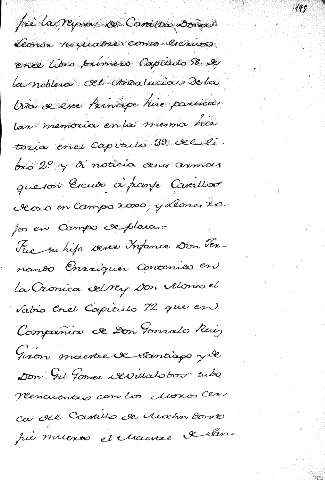 195
fue la Reyna de Castilla Doña
Leonor su quarta como escrivo
en el libro primero Capitulo 98 de
la nobleza del Andalucia. De la
vida de este Principe hice particu-
lar memoria en la mesma his-
toria en el capitulo 39 del li-
bro 2º y di noticia de sus armas
que son Escudo a franje Castillos
de oro en campo roxo, y leones ro-
jos en Campo de plata=
Fue su hijo deste Infante Don Fer-
nando Enrriquez Conocido en
la Cronica del Rey Don Alonso el
Sabio en el Capitulo 72 que en
Compañia de Don Gonzalo Ruiz
Giron maestre de Santiago y de
Don Gil Gomez de Villalobos tubo
rencuentro con los Moros cer-
ca del Castillo de Moclin donde
fue muerto el Maestre de San-